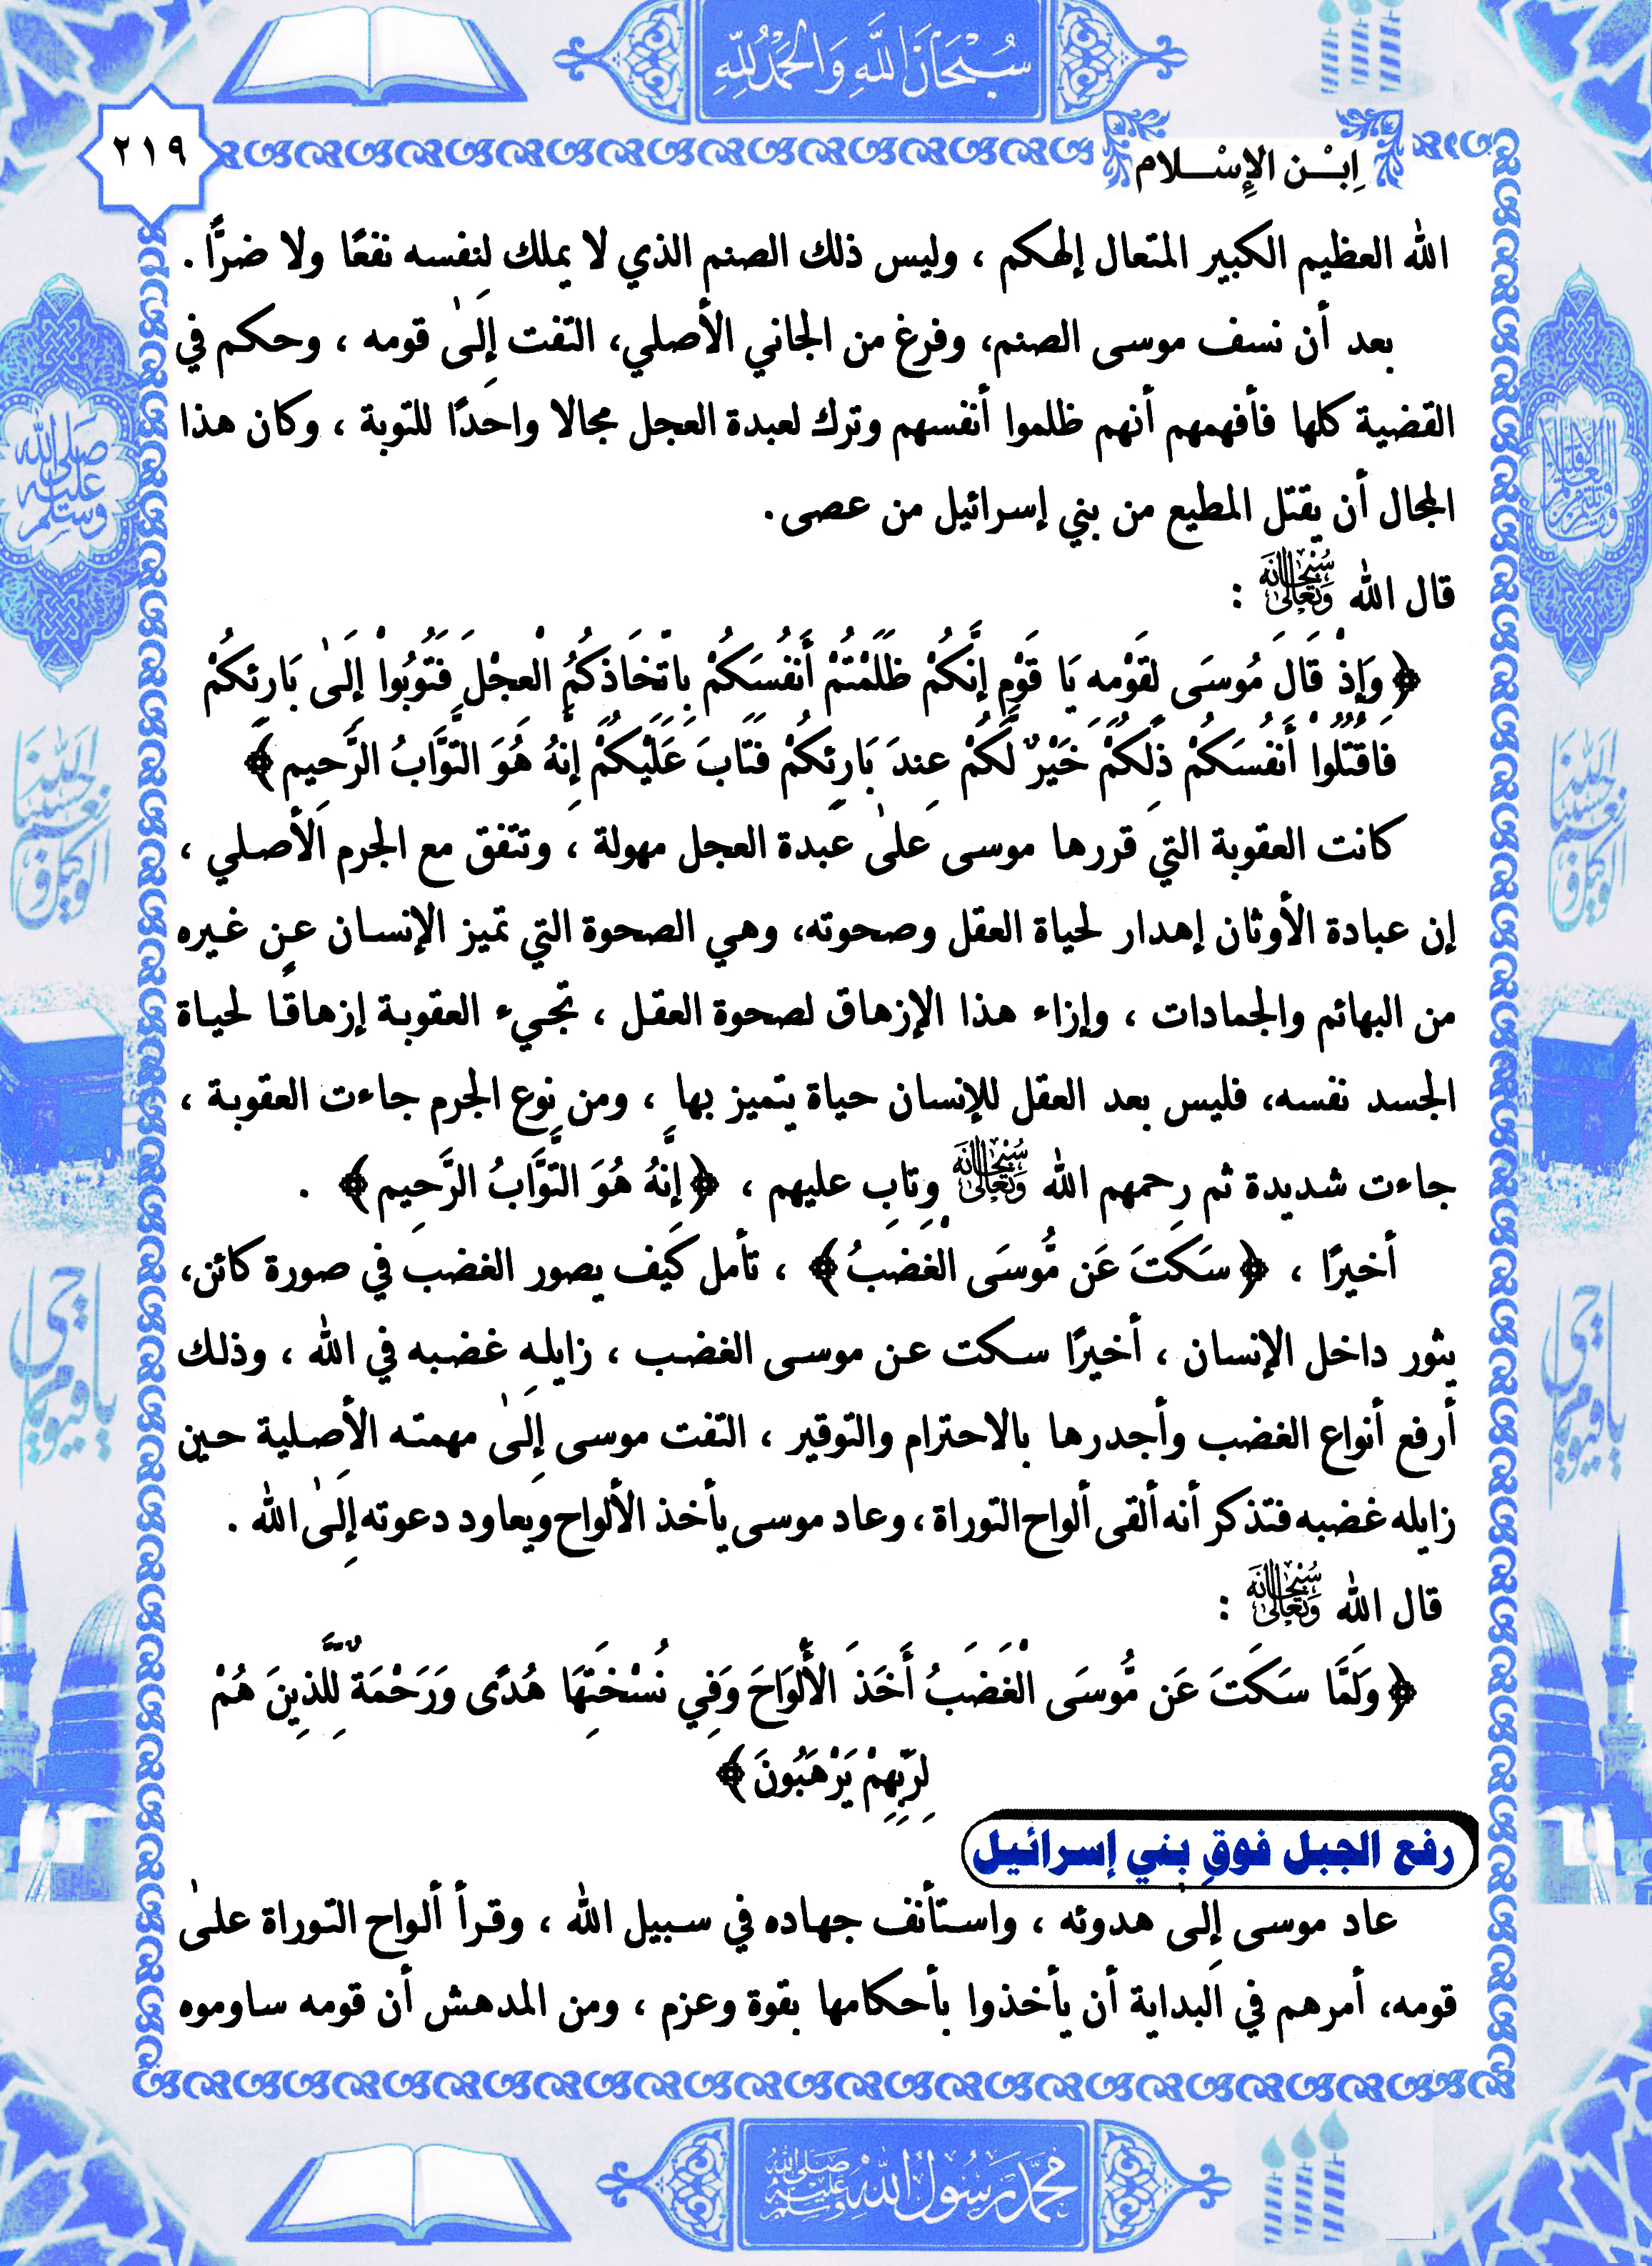 سُبْحَانَ اللَّهِ وَالْحَمْدُ لِلَّهِ
٢١٩
اِبْـن الإِسْـلام
الله العظيم الكبير المتعال إلهكم ، وليس ذلك الصنم الذي لا يملك لِنفسه نفعًا ولا ضرًّا .
بعد أن نسف موسى الصنم، وفرغ من الجاني الأصلي، التفت إِلَىٰ قومه ، وحكم في
القضية كلها فأفهمهم أنهم ظلموا أنفسهم وترك لعبدة العجل مجالا واحدًا للتوبة ، وكان هذا
المجال أن يقتل المطيع من بني إسرائيل من عصى.
قال الله سُبْحَانَهُ وَتَعَالَىٰ :
﴿ وَإِذْ قَالَ مُوسَى لِقَوْمِهِ يَا قَوْمِ إِنَّكُمْ ظَلَمْتُمْ أَنفُسَكُمْ بِاتِّخَاذِكُمُ الْعِجْلَ فَتُوبُواْ إِلَىٰ بَارِئِكُمْ
فَاقْتُلُواْ أَنفُسَكُمْ ذَلِكُمْ خَيْرٌ لَّكُمْ عِندَ بَارِئِكُمْ فَتَابَ عَلَيْكُمْ إِنَّهُ هُوَ التَّوَّابُ الرَّحِيم ﴾
كانت العقوبة التي قررها موسى علىٰ عبدة العجل مهولة ، وتتفق مع الجرم الأصلي ،
إن عبادة الأوثان إهدار لحياة العقل وصحوته، وهي الصحوة التي تميز الإنسان عن غيره
من البهائم والجمادات ، وإزاء هذا الإزهاق لصحوة العقل ، تجيء العقوبة إزهاقًا لحياة
الجسد نفسه، فليس بعد العقل للإنسان حياة يتميز بها ، ومن نوع الجرم جاءت العقوبة ،
جاءت شديدة ثم رحمهم الله سُبْحَانَهُ وَتَعَالَىٰ وتاب عليهم ، ﴿ إِنَّهُ هُوَ التَّوَّابُ الرَّحِيم ﴾ .
أخيرًا ، ﴿ سَكَتَ عَن مُّوسَى الْغَضَبُ ﴾ ، تأمل كيف يصور الغضب في صورة كائن،
يثور داخل الإنسان ، أخيرًا سكت عن موسى الغضب ، زايله غضبه في الله ، وذلك
أرفع أنواع الغضب وأجدرها بالاحترام والتوقير ، التفت موسى إِلَىٰ مهمته الأصلية حين
زايله غضبه فتذكر أنه ألقى ألواح التوراة ، وعاد موسى يأخذ الألواح ويعاود دعوته إِلَىٰ الله .
قال الله سُبْحَانَهُ وَتَعَالَىٰ :
﴿ وَلَمَّا سَكَتَ عَن مُّوسَى الْغَضَبُ أَخَذَ الأَلْوَاحَ وَفِي نُسْخَتِهَا هُدًى وَرَحْمَةٌ لِّلَّذِينَ هُمْ
لِرَبِّهِمْ يَرْهَبُونَ ﴾
رفع الجبل فوق بني إسرائيل
عاد موسى إِلىٰ هدوئه ، واستأنف جهاده في سبيل الله ، وقرأ ألواح التوراة علىٰ
قومه، أمرهم في البداية أن يأخذوا بأحكامها بقوة وعزم ، ومن المدهش أن قومه ساوموه
مُحَمَّدٌ رَسُولُ اللَّهِ صَلَّى اللَّهُ عَلَيْهِ وَسَلَّمَ
صَلَّى اللَّهُ عَلَيْهِ وَسَلَّمَ